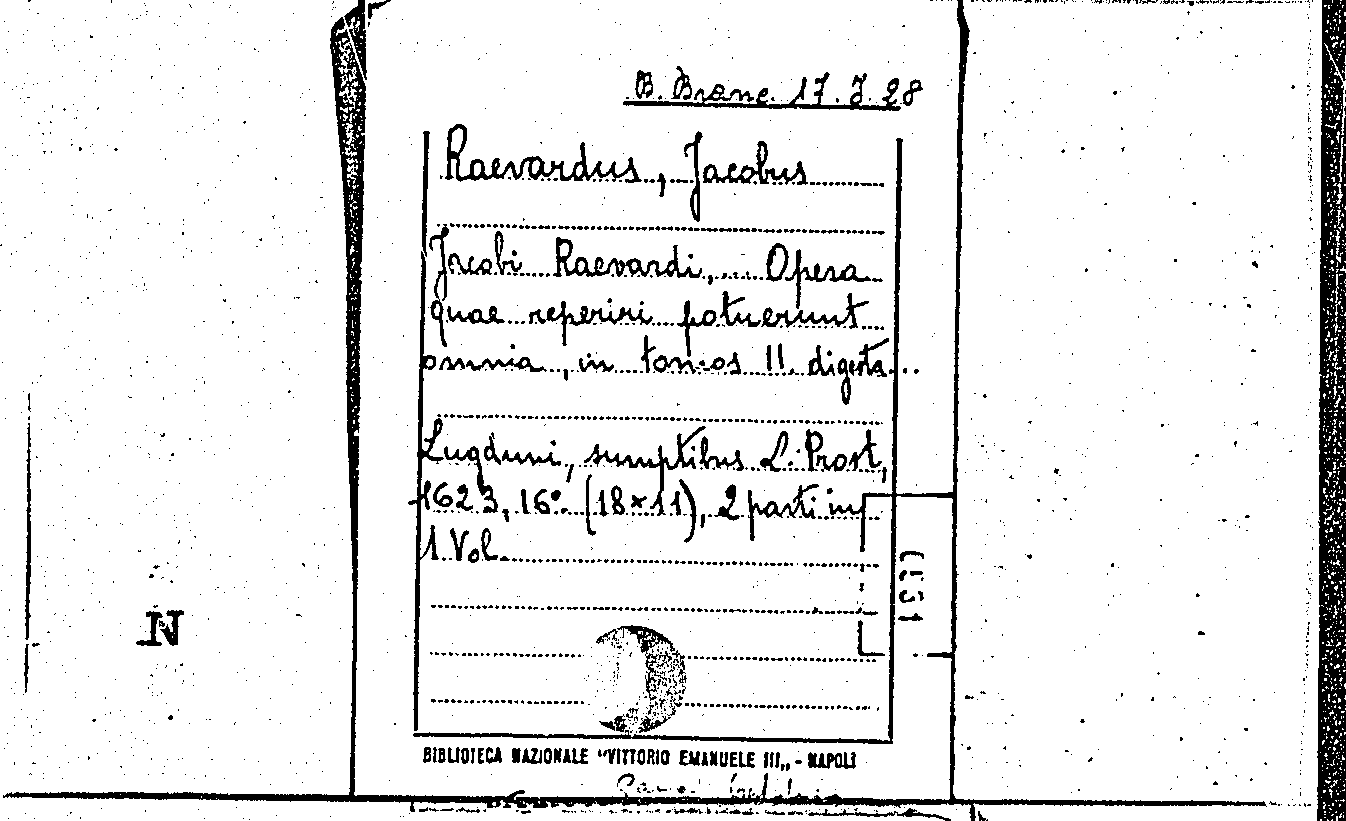 B. Branc. 17. J. 28
Raevardus, Jacobus
Jacobi Raevardi, ... Opera
quae reperiri potuerunt
omnia, in tomos II. digesta...
Lugduni, sumptibus L. Prost,
1623, 16°. (18×11), 2 parti in
1 Vol.
N
BIBLIOTECA NAZIONALE "VITTORIO EMANUELE III„ - NAPOLI